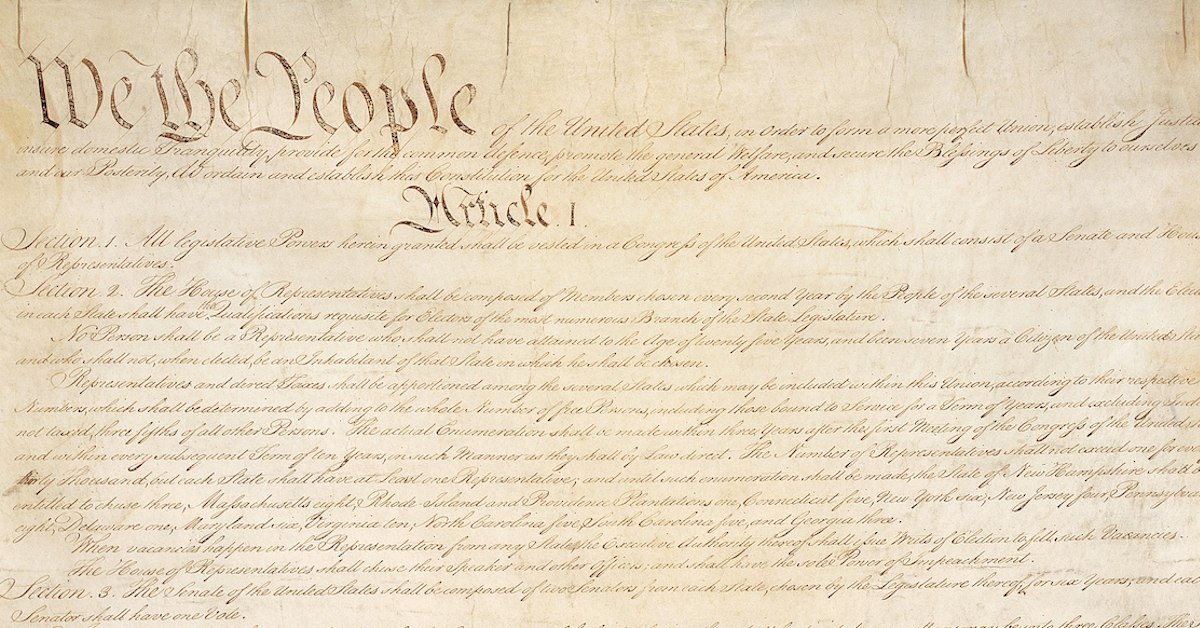 We the People of the United States, in Order to form a more perfect Union, establish Justice
insure domestic Tranquility, provide for the common defence, promote the general Welfare, and secure the Blessings of Liberty to ourselves
and our Posterity, do ordain and establish this Constitution for the United States of America.
Article. I.
Section. 1. All legislative Powers herein granted shall be vested in a Congress of the United States, which shall consist of a Senate and House
of Representatives.
Section. 2. The House of Representatives shall be composed of Members chosen every second Year by the People of the several States, and the Elec
in each State shall have the Qualifications requisite for Electors of the most numerous Branch of the State Legislature.
No Person shall be a Representative who shall not have attained to the Age of twenty five Years, and been seven Years a Citizen of the United Sta
and who shall not, when elected, be an Inhabitant of that State in which he shall be chosen.
Representatives and direct Taxes shall be apportioned among the several States which may be included within this Union, according to their respective
Numbers, which shall be determined by adding to the whole Number of free Persons, including those bound to Service for a Term of Years, and excluding India
not taxed, three fifths of all other Persons. The actual Enumeration shall be made within three Years after the first Meeting of the Congress of the United
and within every subsequent Term of ten Years, in such Manner as they shall by Law direct. The Number of Representatives shall not exceed one for every
thirty Thousand, but each State shall have at Least one Representative; and until such enumeration shall be made, the State of New Hampshire shall
entitled to chuse three, Massachusetts eight, Rhode Island and Providence Plantations one, Connecticut five, New York six, New Jersey four, Pennsylva
eight, Delaware one, Maryland six, Virginia ten, North Carolina five, South Carolina five, and Georgia three.
When vacancies happen in the Representation from any State, the Executive Authority thereof shall issue Writs of Election to fill such Vacancies.
The House of Representatives shall chuse their Speaker and other Officers; and shall have the sole Power of Impeachment.
Section. 3. The Senate of the United States shall be composed of two Senators from each State, chosen by the Legislature thereof, for six Years; and each
Senator shall have one Vote.
into three Classes. The